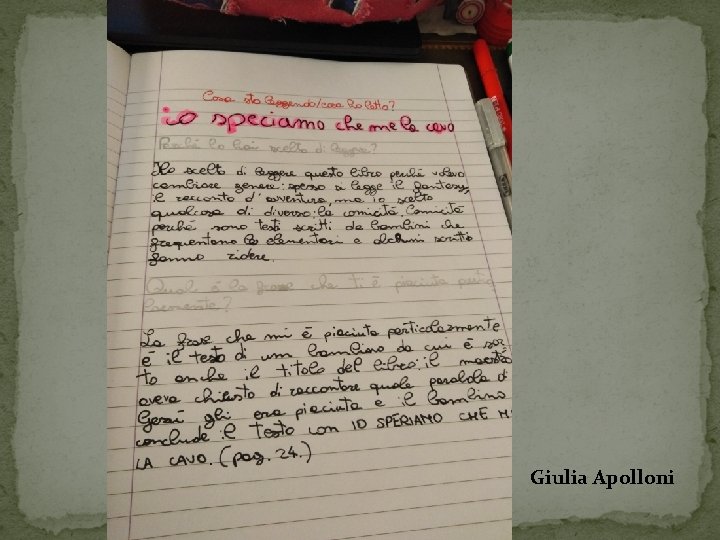 Cosa sto leggendo/cosa ho letto?
io speciamo che me la cavo
Perché lo hai scelto di leggere?
Ho scelto di leggere questo libro perché volevo
cambiare genere: spesso si legge il fantasy,
il racconto d'avventura, ma io scelto
qualcosa di diverso: la comicità. Comicità
perché sono testi scritti da bambini che
frequentano le elementari e alcuni scritti
fanno ridere.
Qual è la frase che ti è piaciuta parti
colarmente?
La frase che mi è piaciuta particolarmente
è il testo di un bambino da cui è sor
to anche il titolo del libro: il maestro
aveva chiesto di raccontare quale parabola di
Gesù gli era piaciuta e il bambino
conclude il testo con IO SPERIAMO CHE M
LA CAVO. (pag. 24.)
Giulia Apolloni